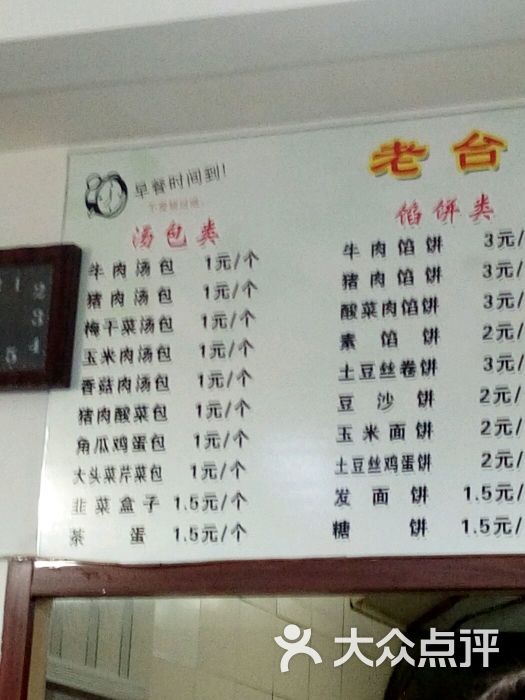 老台
早餐时间到!
汤包类
牛肉汤包 1元/个
猪肉汤包 1元/个
梅干菜汤包 1元/个
玉米肉汤包 1元/个
香菇肉汤包 1元/个
猪肉酸菜包 1元/个
角瓜鸡蛋包 1元/个
大头菜芹菜包 1元/个
韭菜盒子 1.5元/个
茶蛋 1.5元/个
馅饼类
牛肉馅饼 3元/
猪肉馅饼 3元/
酸菜肉馅饼 3元/
素馅饼 2元/
土豆丝卷饼 3元/
豆沙饼 2元/
玉米面饼 2元/
土豆丝鸡蛋饼 2元/
发面饼 1.5元/
糖饼 1.5元/
1 2
3
5 4
大众点评